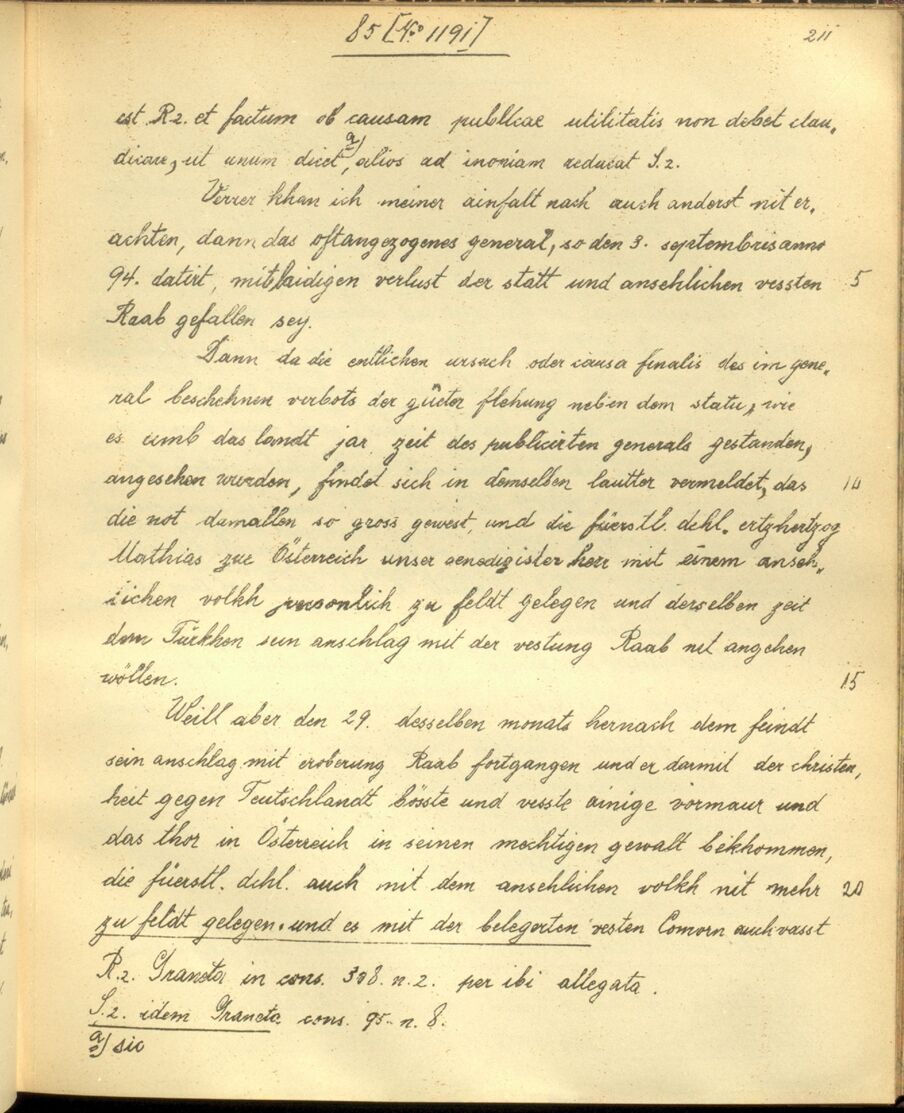 85 [No 1191]
211
est. R2. et factum ob causam publicae utilitatis non debet clau-
dicare, ut unum dicet a), alios ad inoniam reducat S.2.
Verrer khan ich meiner ainfalt nach auch anderst nit er-
achten, dann das oftangezogenes general, so den 3. septembris anno
94. datirt, mit laidigen verlust der statt und ansehlichen vessten 5
Raab gefallen sey.
Dann da die entlichen ursach oder causa finalis des im gene-
ral beschehnen verbots der güeter flehung neben dem statu, wie
es umb das landt jar zeit des publicirten generals gestanden,
angesehen wurden, findet sich in demselben lautter vermeldet, das 10
die not damallen so gross gewest, und die füerstl. dchl. ertzhertzog
Mathias zue Österreich unser genedigister herr mit einem anseh-
lichen volkh personlich zu feldt gelegen und derselben zeit
dem Türkhen sein anschlag mit der vestung Raab nit angehen
wöllen. 15
Weill aber den 29. desselben monats hernach dem feindt
sein anschlag mit eroberung Raab fortgangen und er darmit der christen-
heit gegen Teutschlandt bösste und vesste ainige vormaur und
das thor in Österreich in seinen mechtigen gewalt bekhommen,
die füerstl. dchl. auch mit dem ansehlichen volkh nit mehr 20
zu feldt gelegen. und es mit der belegerten vesten Comorn auch vasst
R.2. Graneta in cons. 308. n. 2. per ibi allegata.
S.2. idem Graneta cons. 95. n. 8.
a) sic